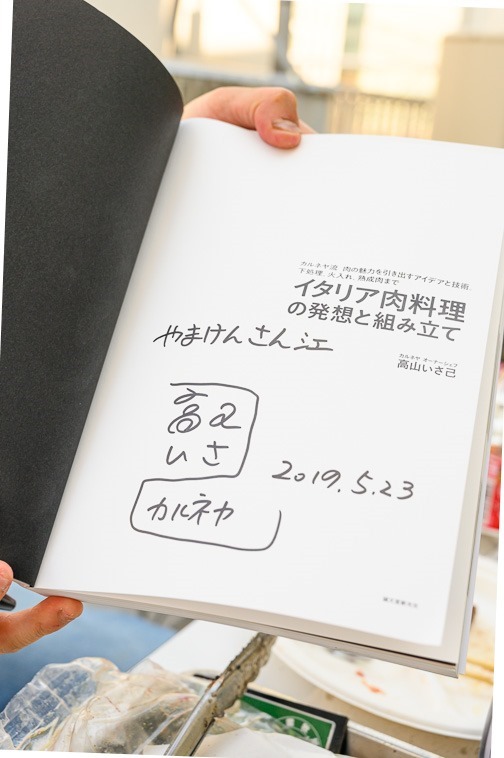 カルネヤ流 肉の魅力を引き出すアイデアと技術。
下処理、火入れ、熟成肉まで
イタリア肉料理
の発想と組み立て
カルネヤ オーナーシェフ
高山いさ己
やまけんさん江
高山
いさ己
カルネヤ
2019.5.23
誠文堂新光社